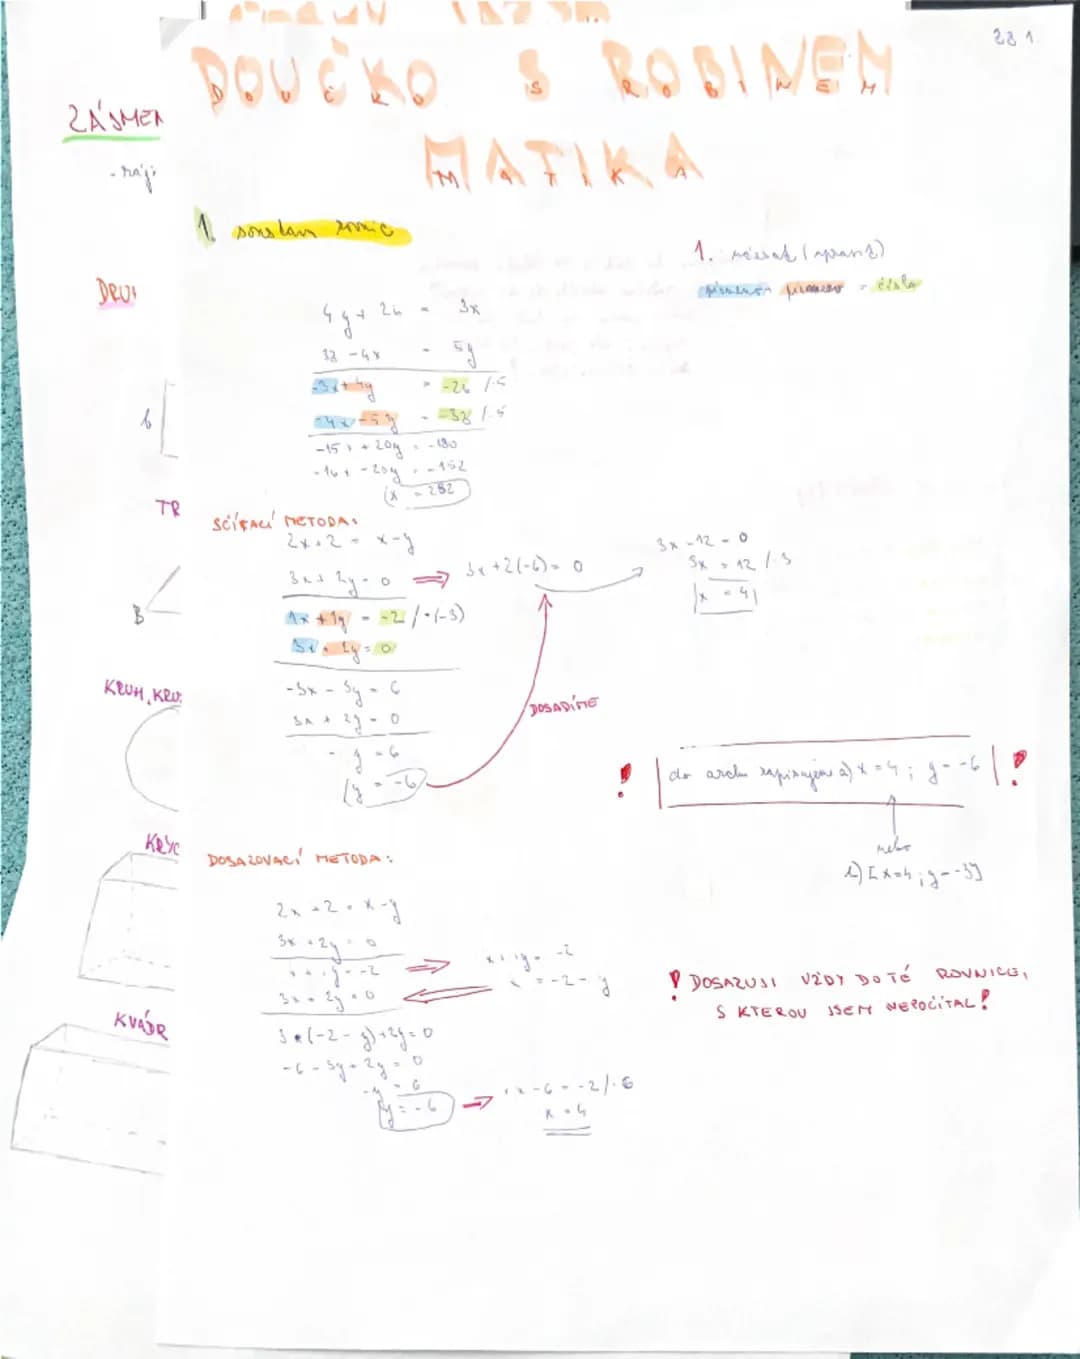 28.1.
DOUČKO S ROBINEM
MATIKA
ZÁJMEN
1. soustavy rovnic
1. srovnat (upravit)
písmeno písmeno = číslo
DRU
4y + 26 = 3x
38 - 4x = 5y
-3x + 4y = -26 /·5
-4x - 5y = -38
-15x + 20y = -130
-16x - 20y = -152
x = 282
TR
SČÍTACÍ METODA:
2x + 2 = x - y
3x + 2y = 0 ⇒ 3x + 2(-6) = 0
3x - 12 = 0
3x = 12 /:3
x = 4
1x + 1y = -2 /·(-3)
3x + 2y = 0
B
-3x - 3y = 6
3x + 2y = 0
- y = 6
y = -6
DOSADÍME
KRUH, KRU
! do archu zapisujeme a) x = 4; y = -6 !
nebo
KRYC
DOSAZOVACÍ METODA:
2x + 2 = x - y
3x + 2y = 0
x + y = -2 ⇒ x + 1y = -2
3x + 2y = 0 ⇐ x = -2 - y
! DOSAZUJI VŽDY DO TÉ ROVNICE,
S KTEROU JSEM NEPOČÍTAL!
KVÁDR
3·(-2 - y) + 2y = 0
-6 - 3y + 2y = 0
-y = 6
y = -6 ⇒ 1x - 6 = -2
x = 4